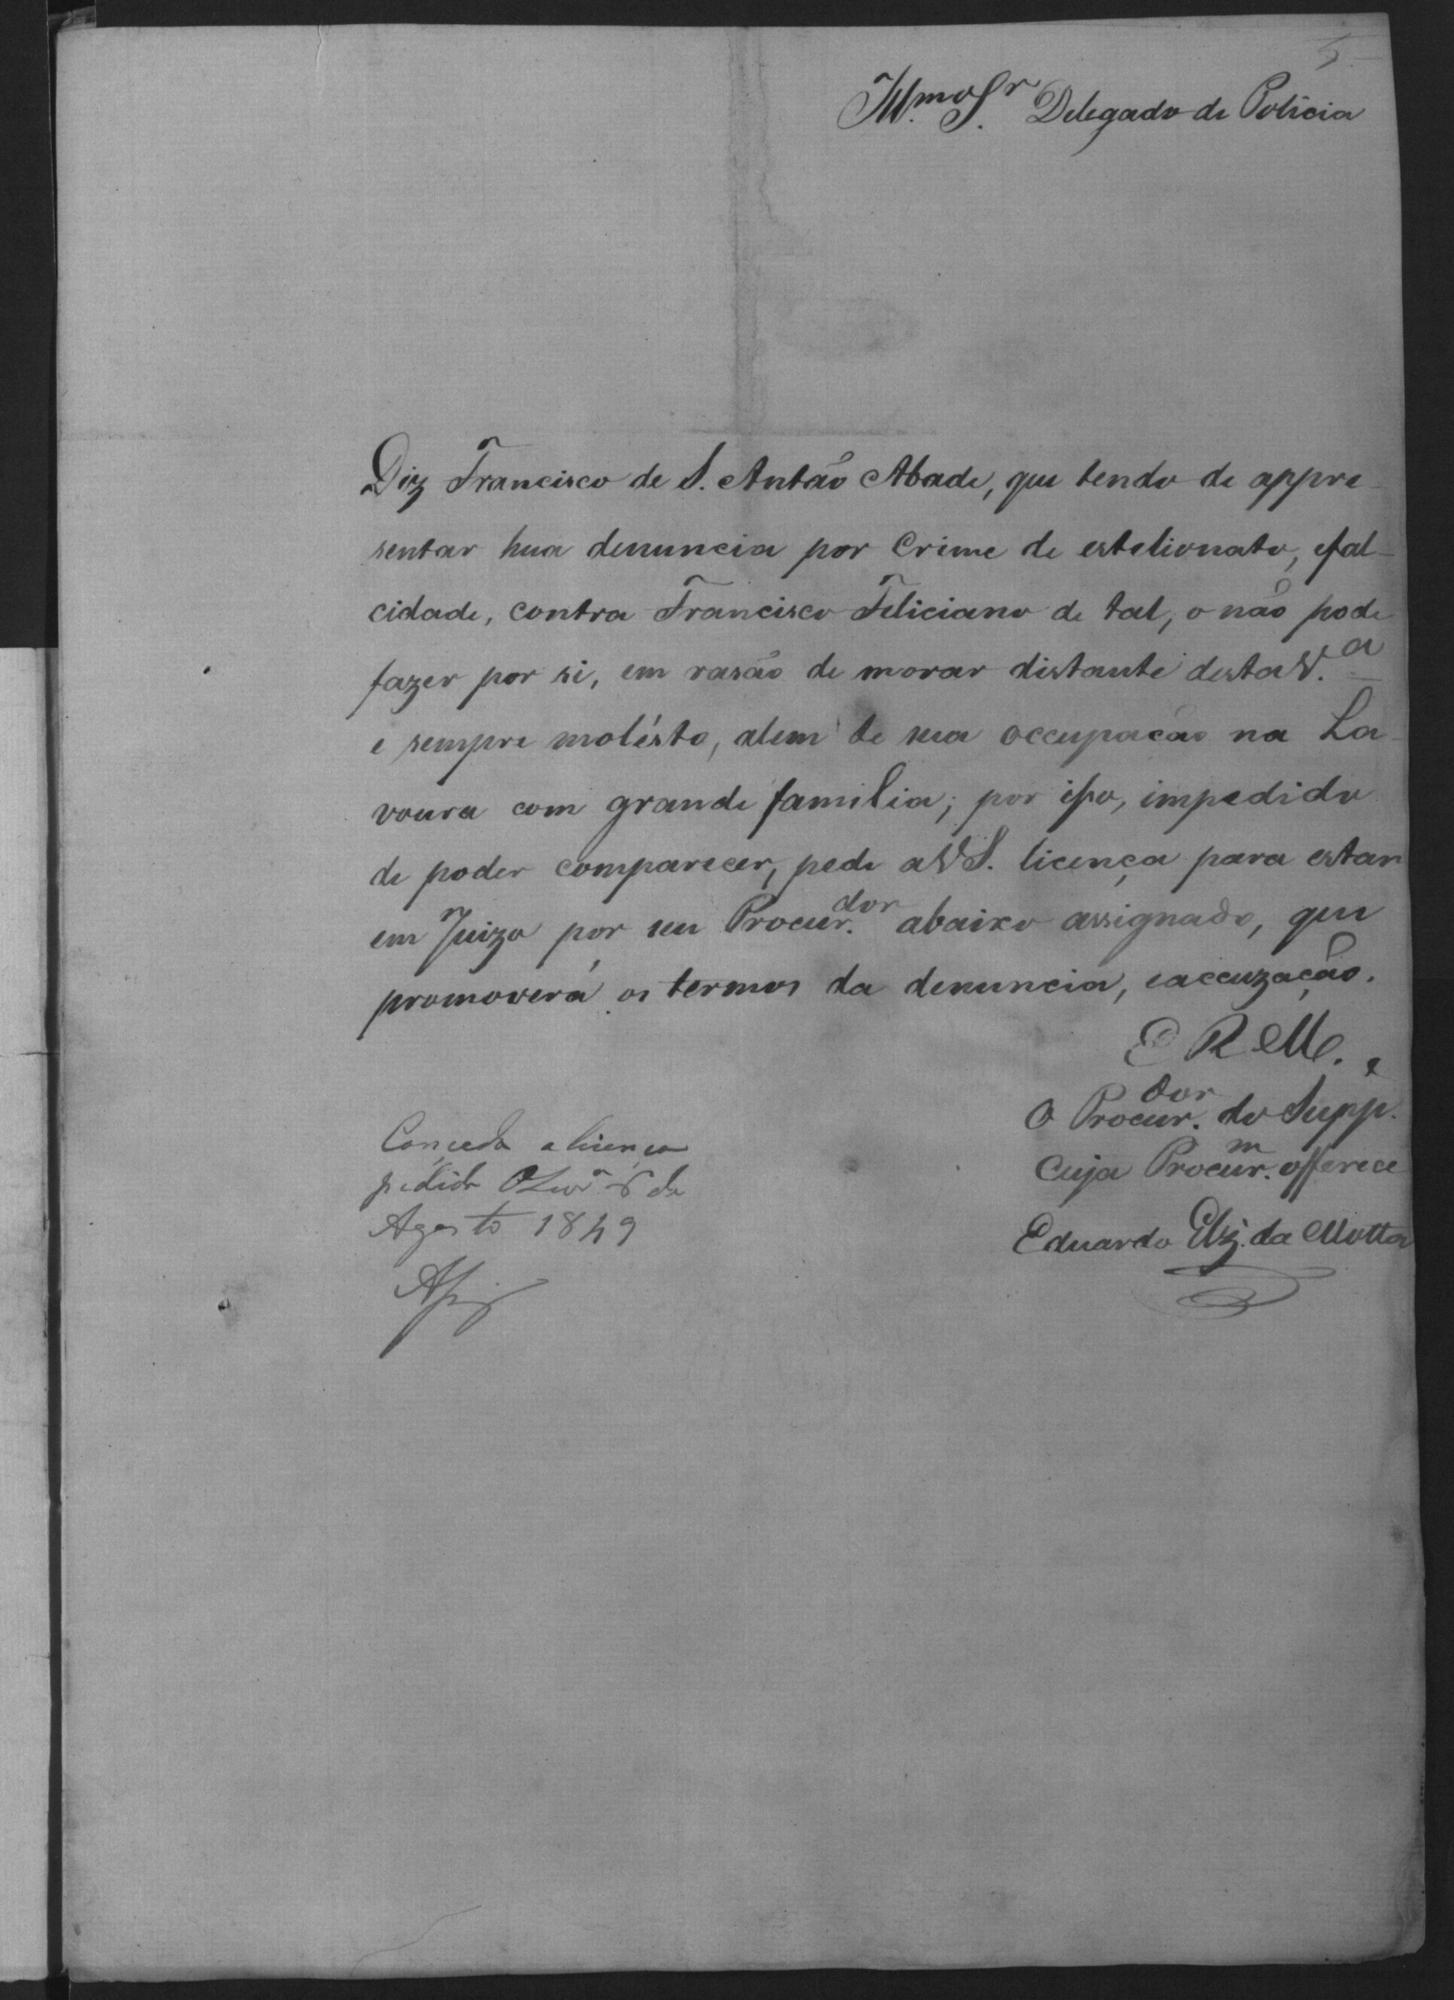 5
Ill.mo S.r Delegado de Policia
Diz Francisco de S. Antão Abade, que tendo de appre-
sentar hua denuncia por Crime de estelionato, e fal-
cidade, contra Francisco Feliciano de tal, o não pode
fazer por si, em rasão de morar distante desta V.a
e sempre molésto, alem de sua occupação na La-
voura com grande familia; por isso, impedido
de poder comparecer, pede a V S. licença para estar
em Juizo por seu Procur.dor abaixo assignado, que
promoverá os termos da denuncia, e accuzação.
E R M.e
O Procur.dor do Supp.e
Cuja Procur.m offerece
Eduardo da Motta
Conceda a licença
pedida 6 de
Agosto 1849